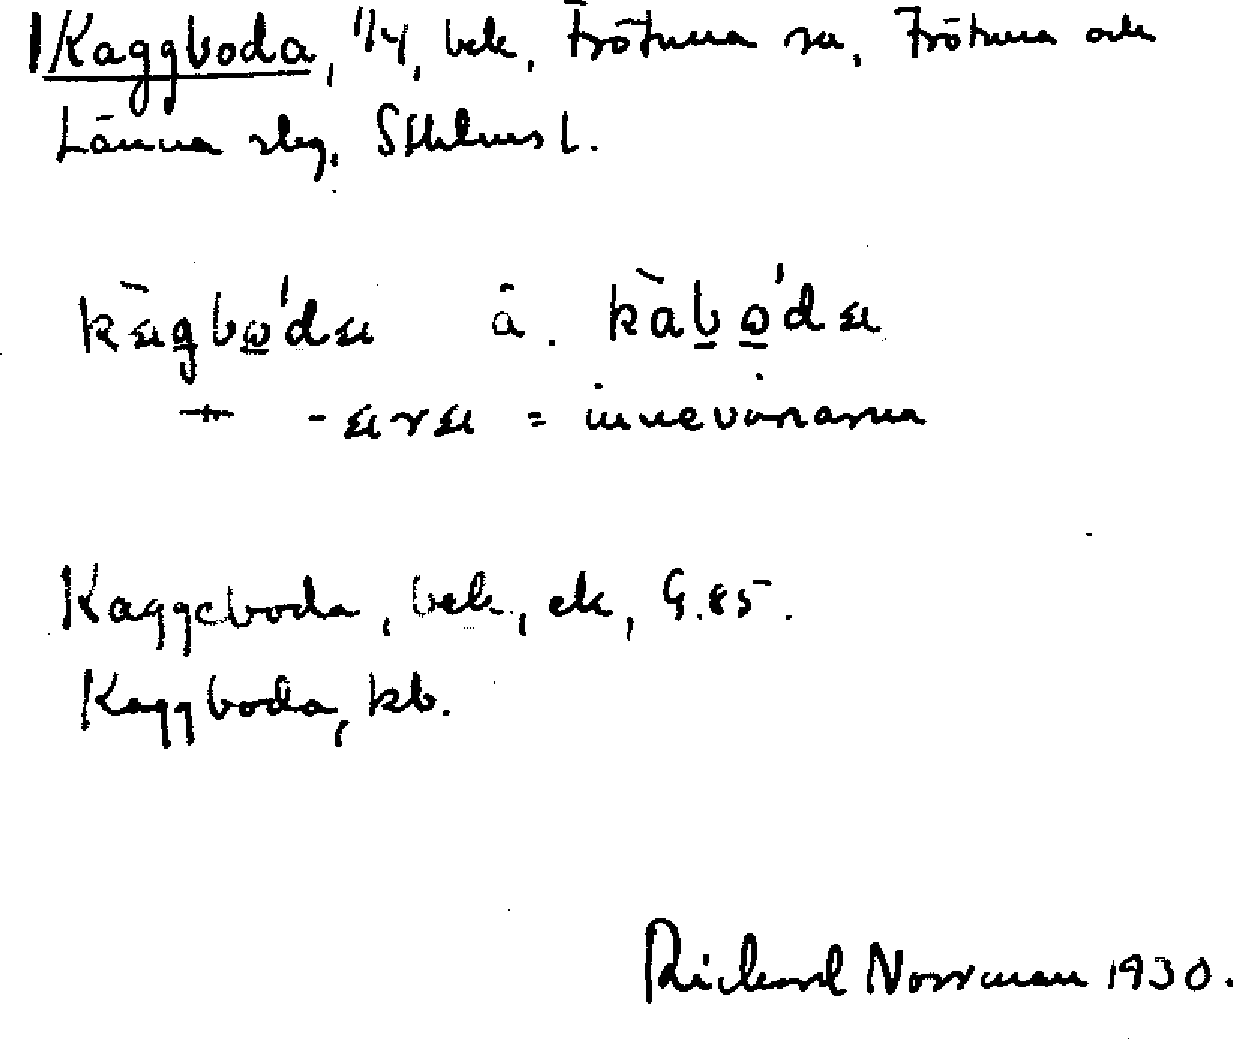 Kaggboda, 1/4, bek. Frötuna sn. Frötuna och
Länna slg. Sthlms l.
à.
= innevånarna
Kaggeboda, bek, ek, G.85.
Kaggboda, kb.
Rickard Norrman 1930.